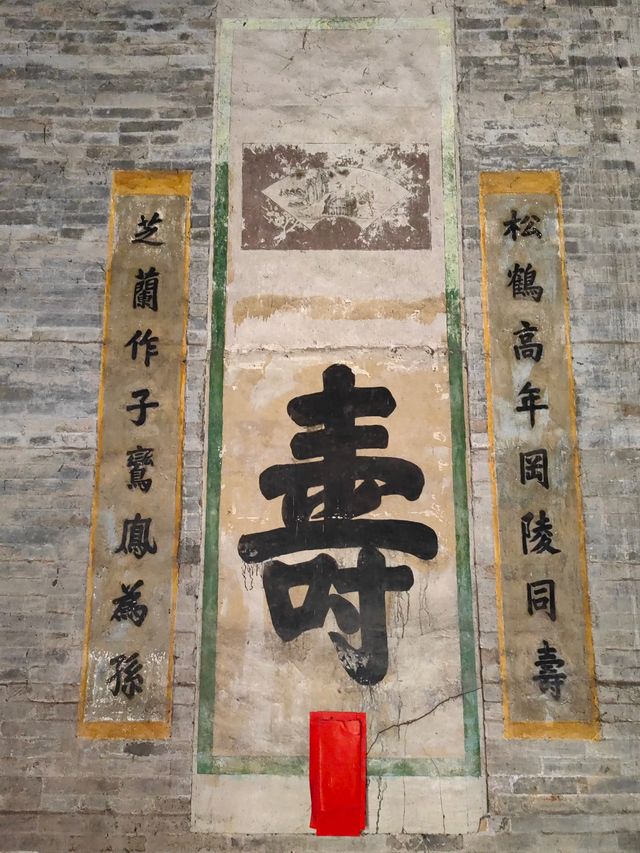 松鶴高年岡陵同壽
壽
芝蘭作子鸞鳳為孫